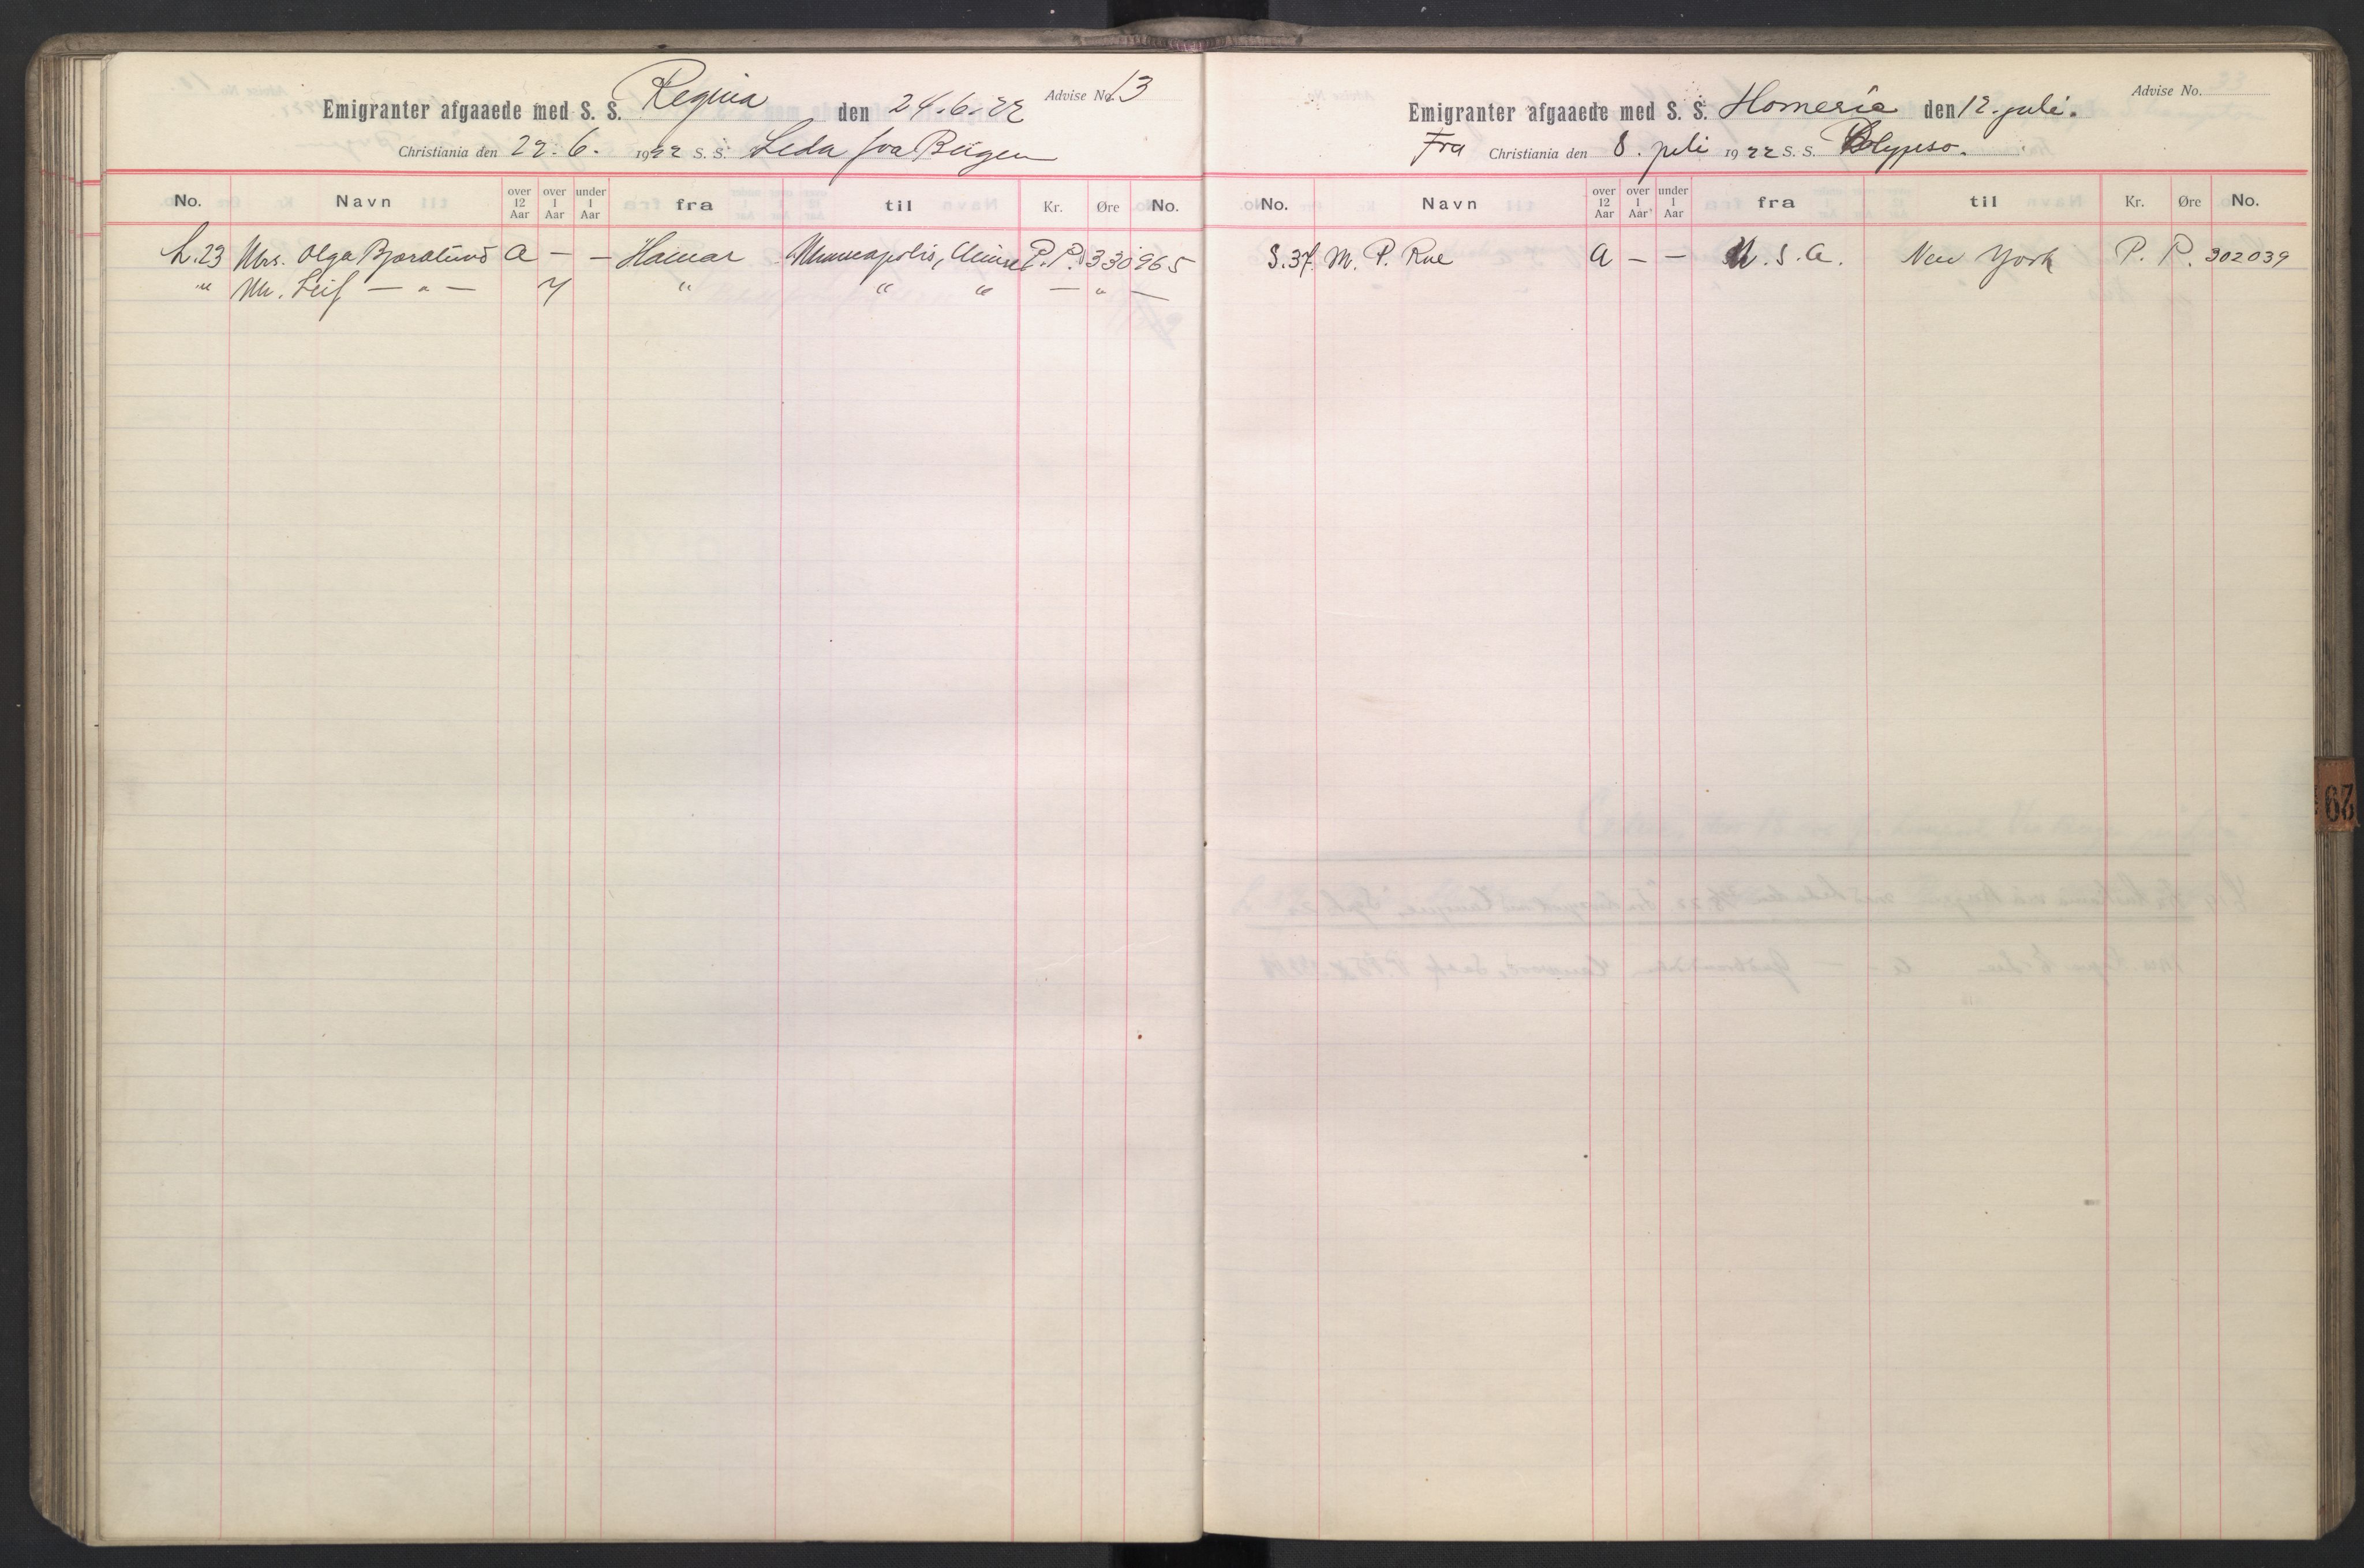 Emigranter afgaaede med S. S. Regina den 24.6.22 Advise No. 13
Christiania den 22.6. 1922 S. S. Leda fra Bergen
No. Navn over 12 Aar over 1 Aar under 1 Aar fra til Kr. Øre No.
L.23 Mrs. Olga Bjoralund A — — Hamar Minneapolis, Minn P.P. 330965
" Mr. Leif — " — 7 " " " — " —
Emigranter afgaaede med S. S. Homeric den 12. juli. Advise No.
Fra Christiania den 8. juli 1922 S. S. Calypso.
No. Navn over 12 Aar over 1 Aar under 1 Aar fra til Kr. Øre No.
S.37. M. P. Rue A — — U.S.A. New York P. P. 302039
29